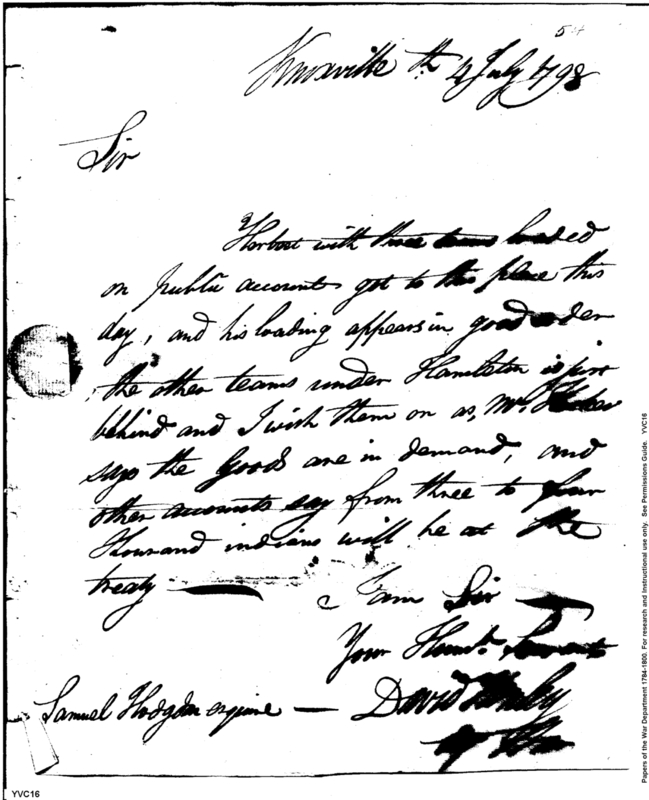 54
Knoxville th. 4 July 1798
Sir
Harbost with three teams loaded
on public accounts got to this place this
day, and his loading appears in good order
, the other teams under Hamilton is just
behind and I wish them on as, Mr.
says the Goods are in demand, and
other accounts say from three to four
thousand indians will be at the
treaty
I am Sir
Your Humb. Servant
Samuel Hodgdon esquire — David Henley
YVC16
Papers of the War Department 1784-1800. For research and Instructional use only. See Permissions Guide. YVC16